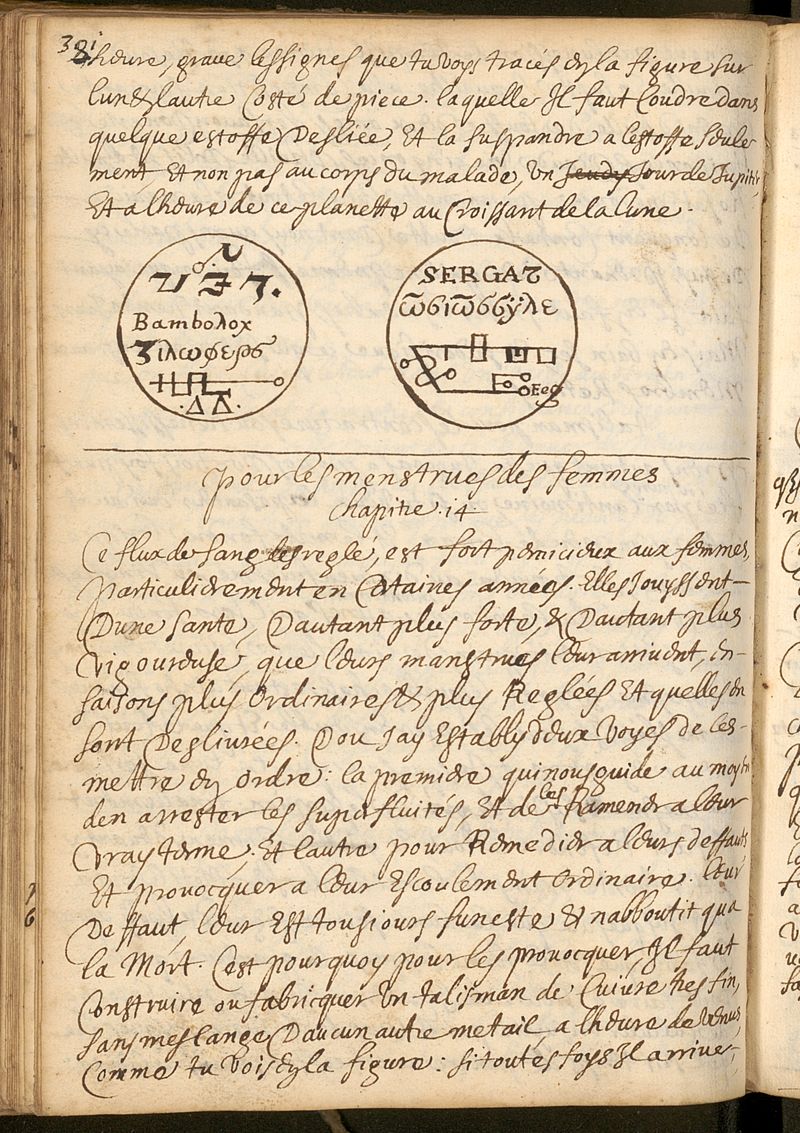 381
heure, grave les signes que tu voys tracés en la figure sur
lun & lautre Costé de piece. laquelle Il faut Coudre dans
quelque estoffe Desliée, Et la suspandre a lestoffe seule
ment, Et non pas au corps du malade, un Jeudy Jour de Jupiter
Et a lheure de ce planette au Croissant de la lune.
Bambolox
SERGAT
Pour les menstrues des femmes
Chapitre .14.
Ce flux de sang desreglé, est fort pernicieux aux femmes,
particulierement en Certaines années. Elles Jouyssent
Dune santé, Dautant plus forte, & Dautant plus
Vigoureuse, que leurs manstrues leur arrivent, en
saisons plus ordinaires & plus Reglées Et quelles en
sont Deslivrées. Dou Jay Estably deux Voyes de les
mettre en ordre: la premiere qui nous guide au moyen
den arrester les superfluités, Et de les Ramener a leur
Vray terme, Et lautre pour Remedier a leurs deffauts
Et provocquer a leur Escoulement ordinaire. leur
Deffaut, leur Est tousiours funeste & nabboutit qua
la Mort. Cest pourquoy pour les provocquer, Il faut
Construire ou fabricquer un talisman de Cuivre tres fin,
sans meslange Daucun autre metail, a lheure de venus,
Comme tu vois en la figure: si toutes foys Il arrive